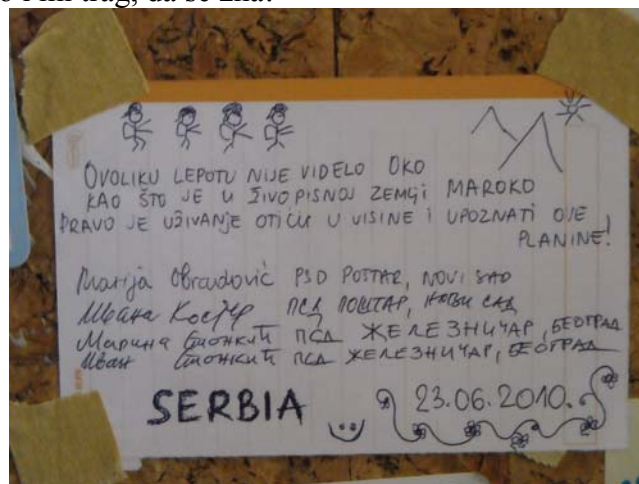 trag, da se zna.
OVOLIKU LEPOTU NIJE VIDELO OKO
KAO ŠTO JE U ŽIVOPISNOJ ZEMLJI MAROKO
PRAVO JE UŽIVANJE OTIĆI U VISINE I UPOZNATI OVE
PLANINE!
Marija Obradović PSD POŠTAR, NOVI SAD
Ивана ПСД ПОШТАР, НОВИ САД
Марина Стонкић ПСД ЖЕЛЕЗНИЧАР, БЕОГРАД
Иван Стонкић ПСД ЖЕЛЕЗНИЧАР, БЕОГРАД
SERBIA 23.06.2010.